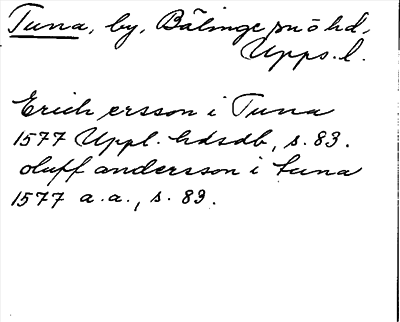 Tuna, by, Bälinge sn o hd,
Upps. l.
Erich ersson i Tuna
1577 Uppl. hdsdb, s. 83.
oluff andersson i tuna
1577 a.a., s. 83.